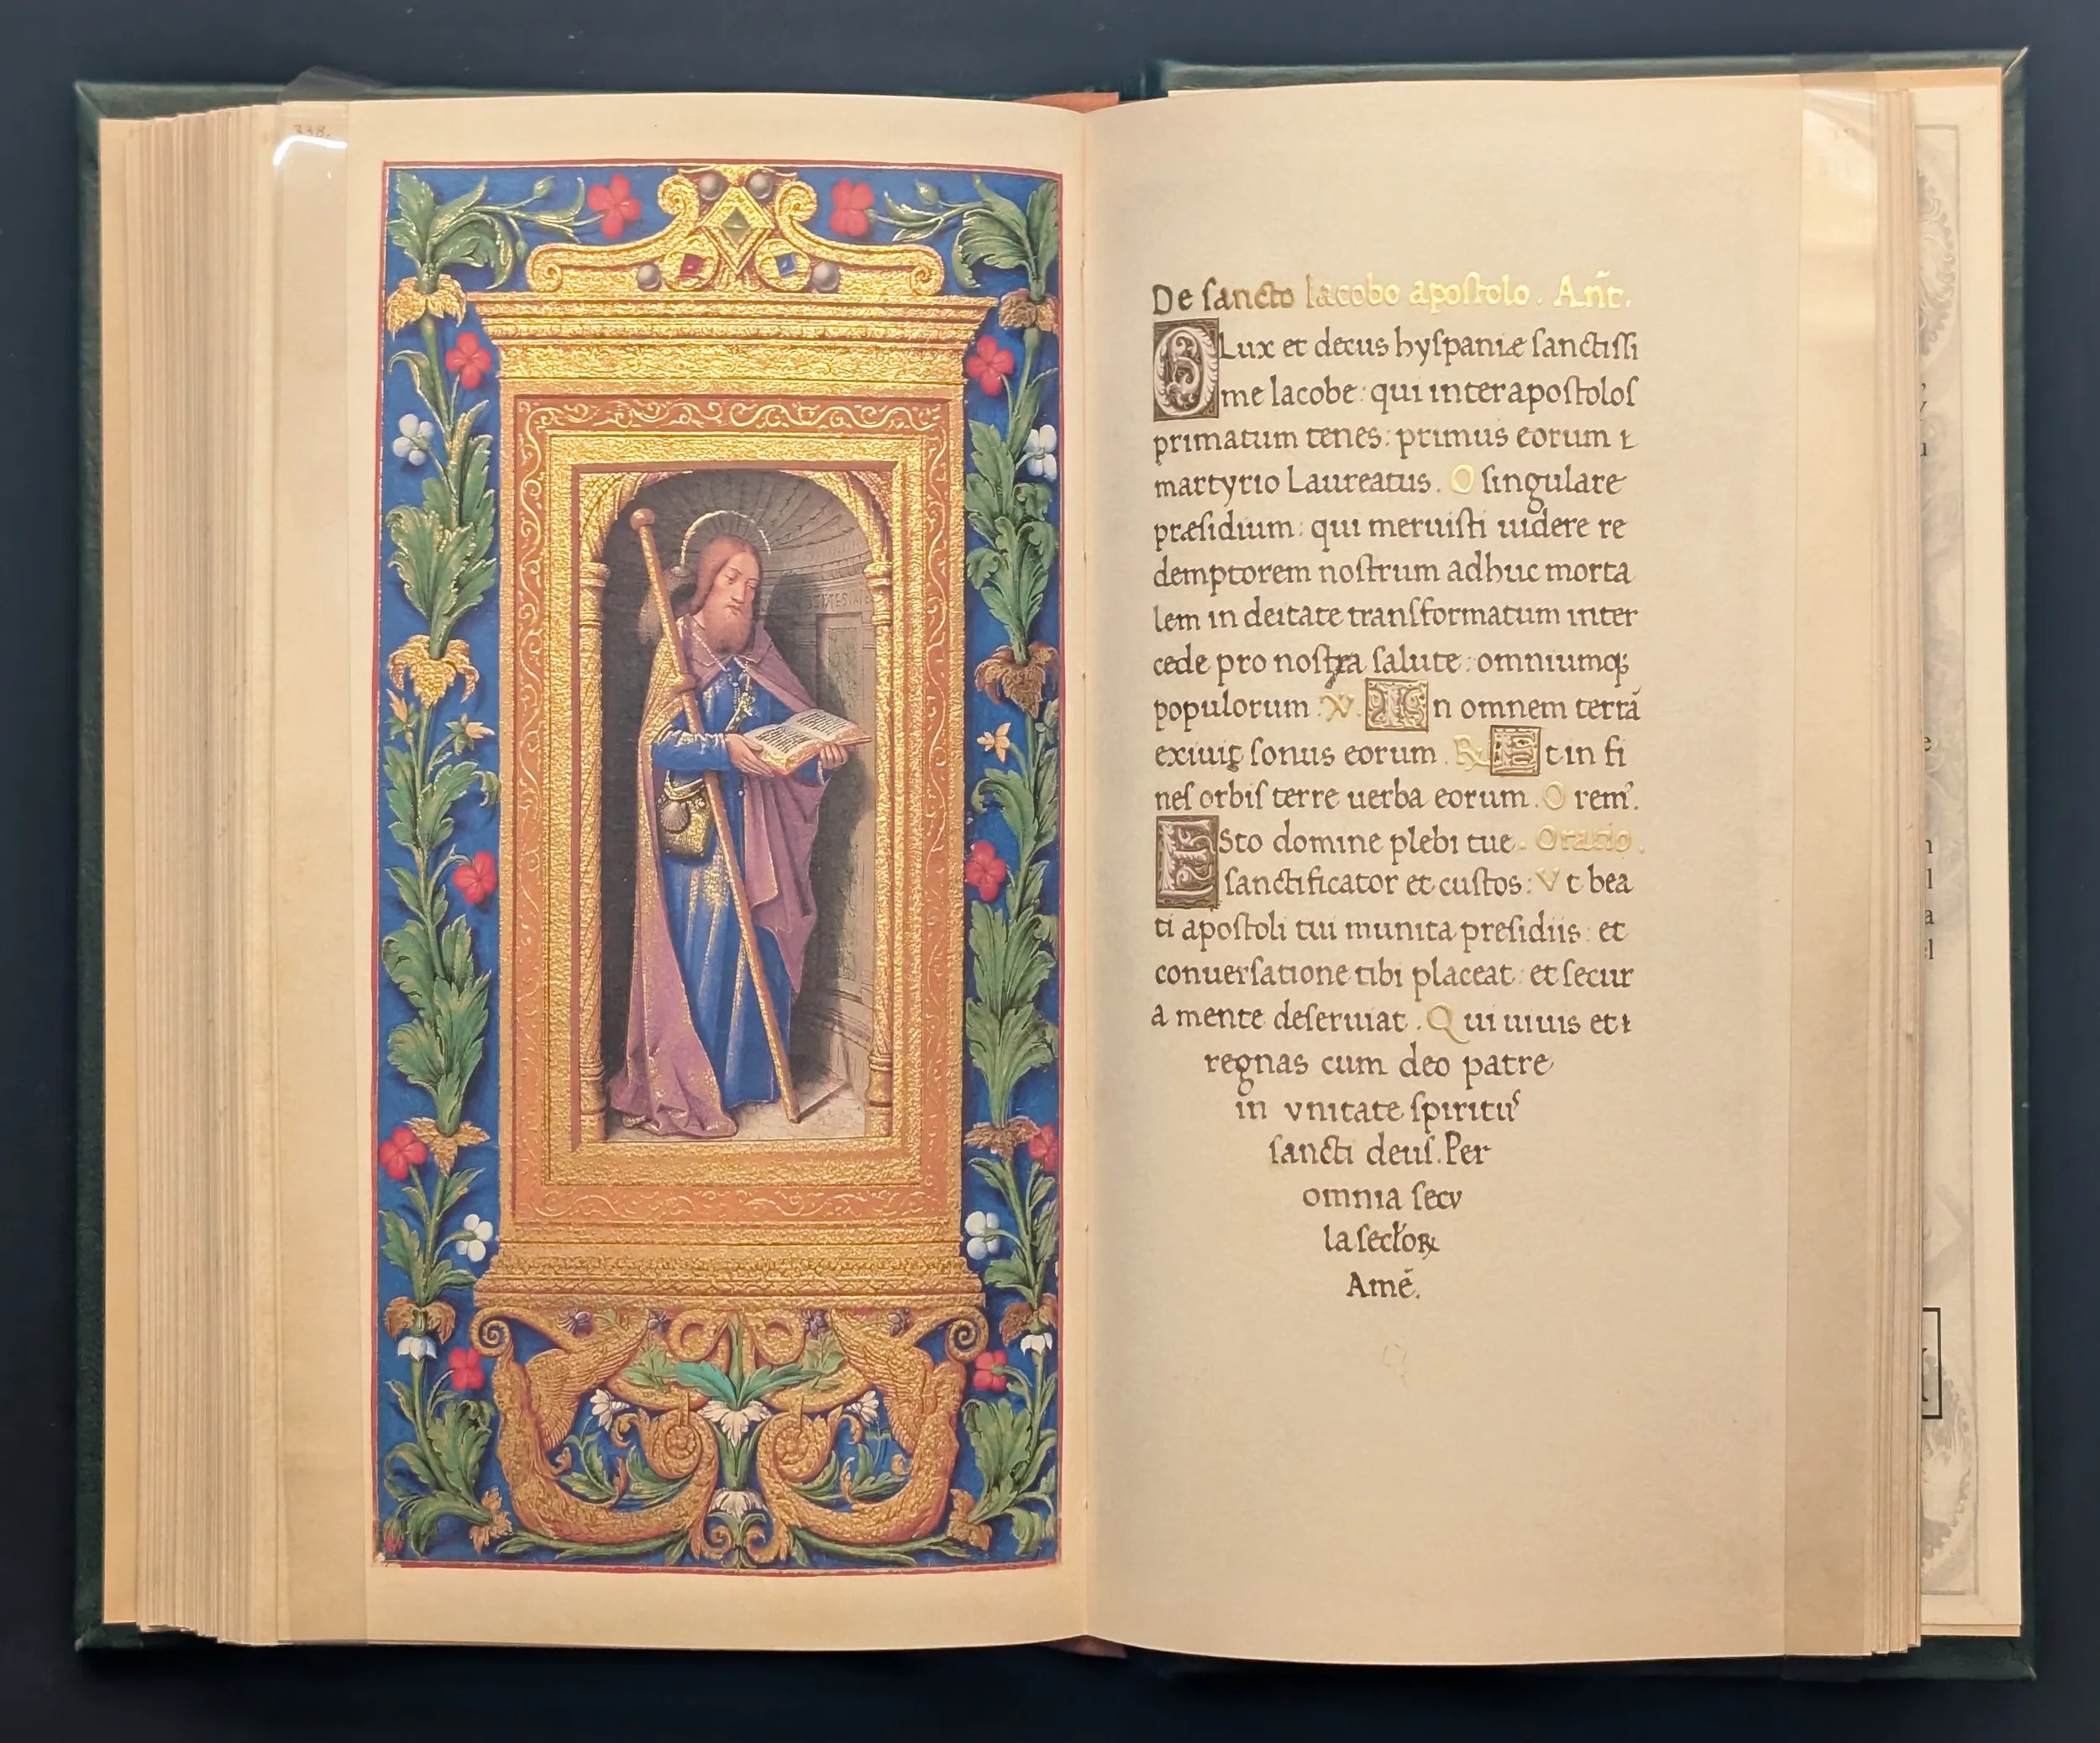 338.
De sancto Iacobo apostolo. Añt.
O Lux et decus hyspaniæ sanctissi
me Iacobe: qui inter apostolos
primatum tenes: primus eorum ı
martyrio Laureatus. O singulare
præsidium: qui meruisti uidere re
demptorem nostrum adhuc morta
lem in deitate transformatum inter
cede pro nostra salute: omniumq;
populorum. V. In omnem terrā
exiuit sonus eorum. ℞ Et in fi
nes orbis terre uerba eorum. O rem̄.
Esto domine plebi tue. Oratio.
sanctificator et custos: Vt bea
ti apostoli tui munita presidiis: et
conuersatione tibi placeat: et secur
a mente deseruiat. Qui uiuis et ı
regnas cum deo patre
in vnitate spiritu᷒
sancti deus. Per
omnia secv
la secl'oꝝ
Amē.